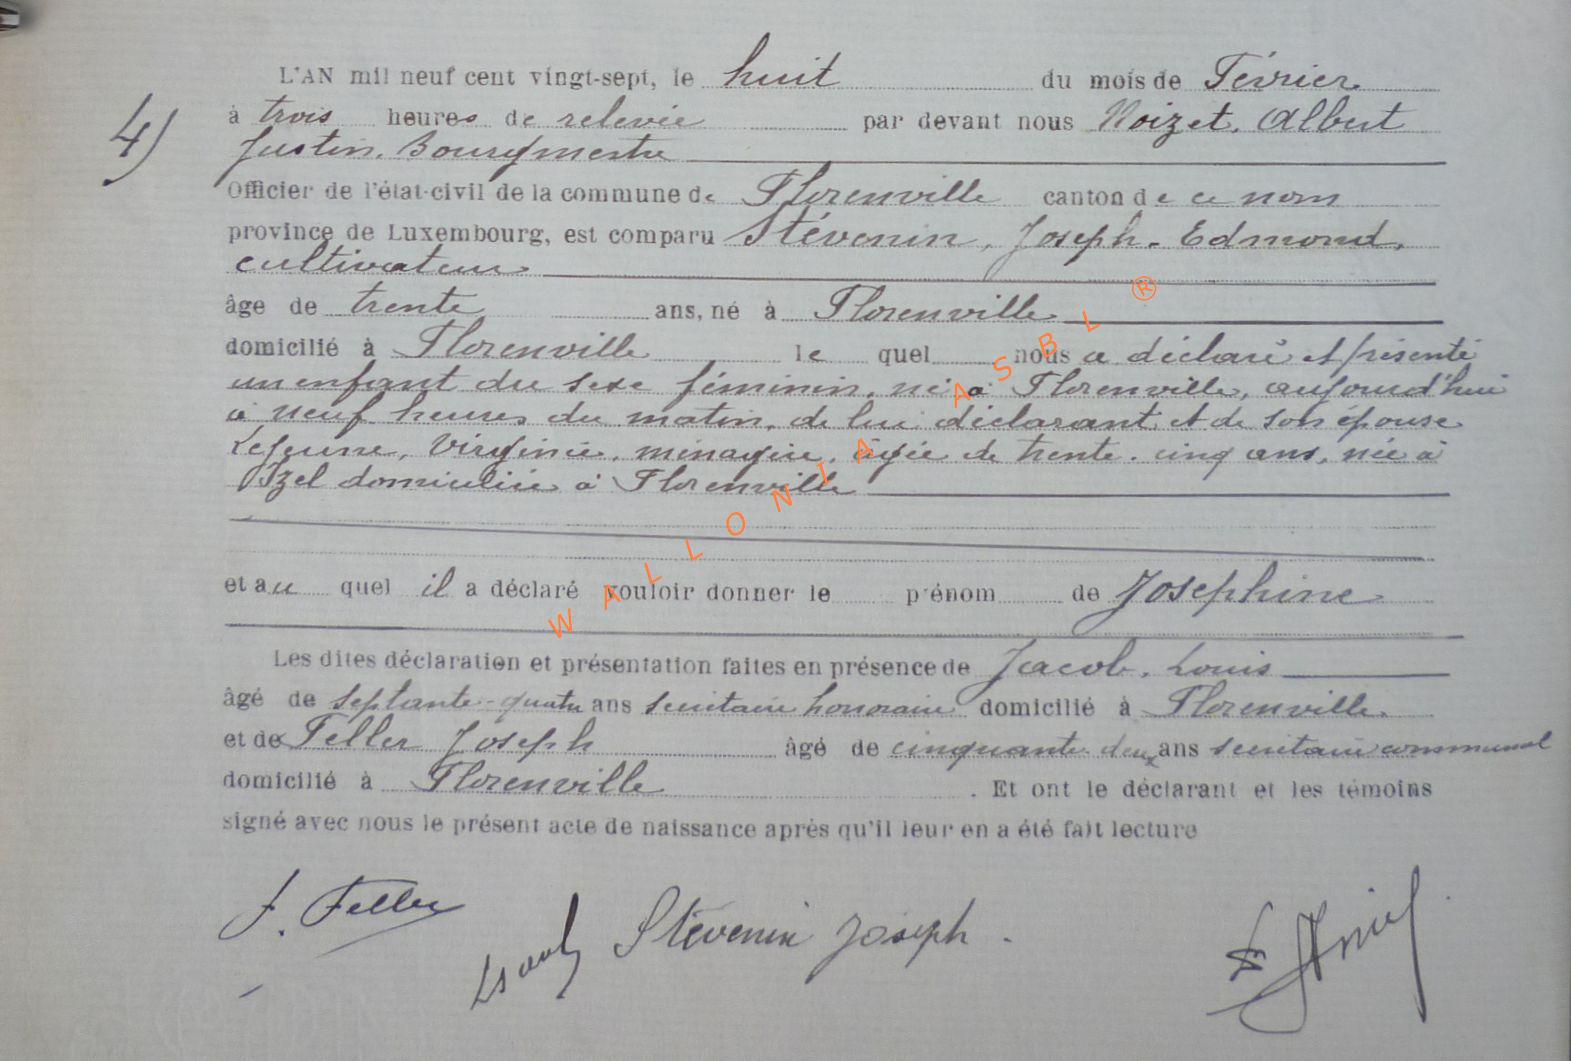 4)
L'AN mil neuf cent vingt-sept, le huit du mois de Février
à trois heures de relevée par devant nous Noizet, Albert
Justin, Bourgmestre
Officier de l'état-civil de la commune de Florenville canton de ce nom
province de Luxembourg, est comparu Stévenin, Joseph, Edmond,
cultivateur
âge de trente ans, né à Florenville
domicilié à Florenville le quel nous a déclaré et présenté
un enfant du sexe féminin, né à Florenville, aujourd'hui
à neuf heures du matin, de lui déclarant et de son épouse
Lejeune, Virginie, ménagère, âgée de trente-cinq ans, née à
Izel domiciliée à Florenville
et au quel il a déclaré vouloir donner le prénom de Joséphine
Les dites déclaration et présentation faites en présence de Jacob, Louis
âgé de septante-quatre ans secrétaire honoraire domicilié à Florenville
et de Feller Joseph âgé de cinquante deux ans secrétaire communal
domicilié à Florenville. Et ont le déclarant et les témoins
signé avec nous le présent acte de naissance après qu'il leur en a été fait lecture
J. Feller
Stévenin Joseph
WALLONIA ASBL ®